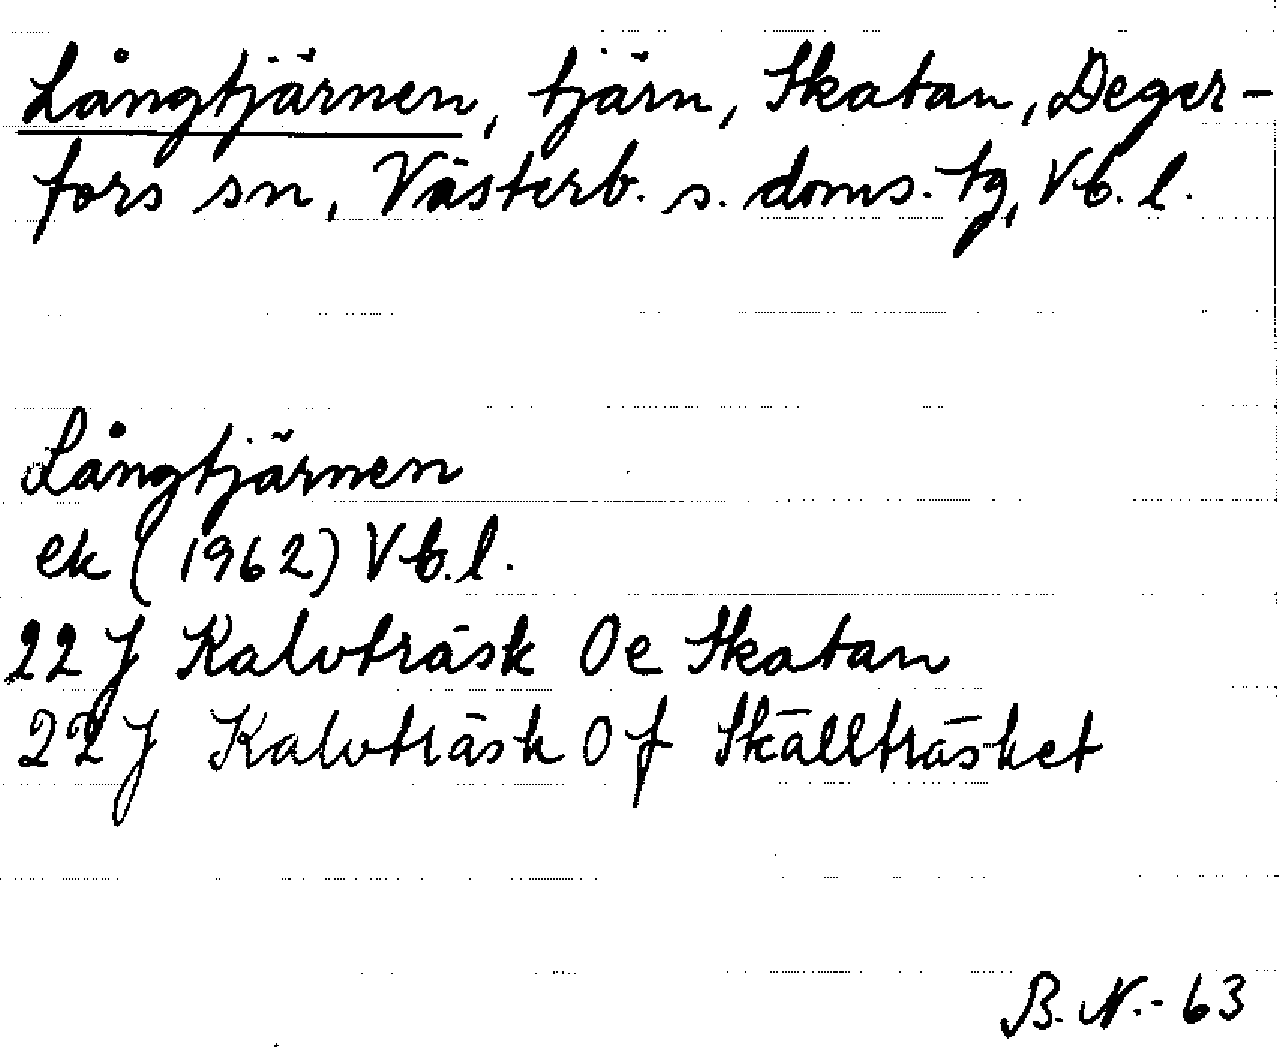 Långtjärnen, tjärn, Skatan, Deger-
fors sn, Västerb. s. doms. tg, Vb. l.
Långtjärnen
ek (1962) Vb.l.
22 J Kalvträsk 0e Skatan
22 J Kalvträsk 0f Skällträsket
B. N. - 63